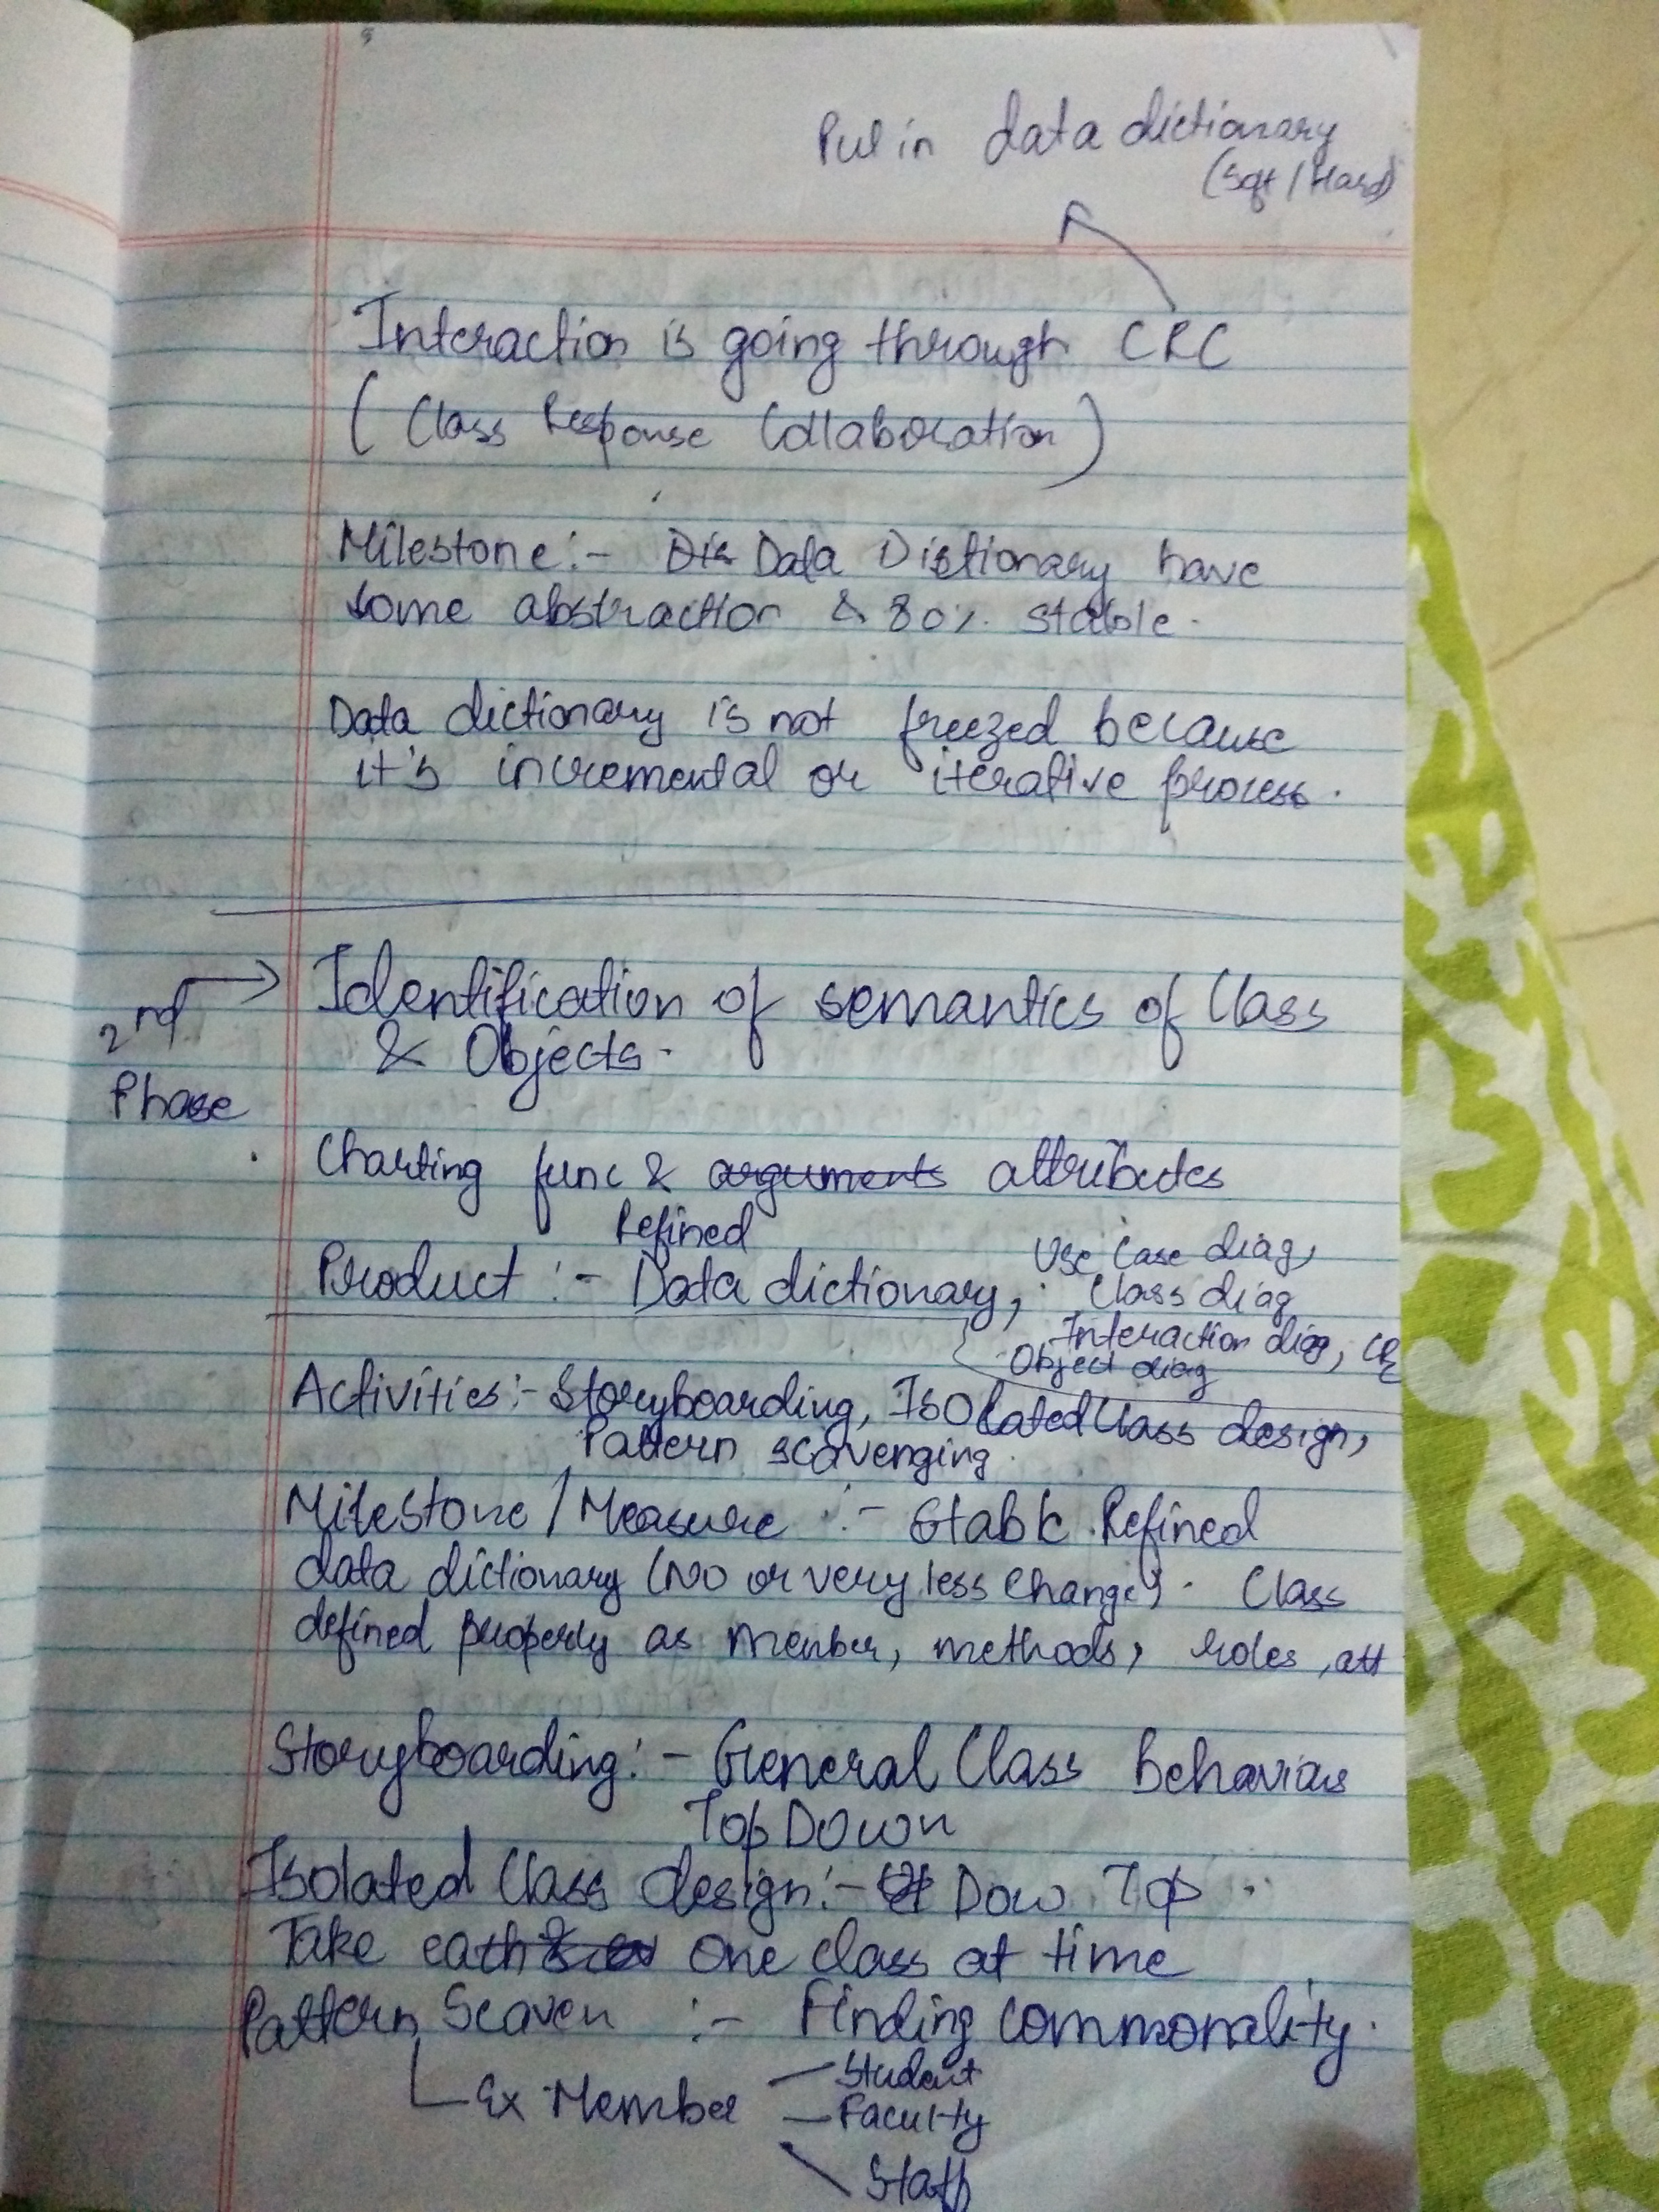 Put in data dictionary
(Soft / Hard)
Interaction is going through CRC
( Class Response Collaboration )
Milestone :- Dis Data Dictionary have
some abstraction & 80% stable.
Data dictionary is not freezed because
it's incremental or iterative process.
2nd Phase → Identification of semantics of Class
& Objects.
Charting func & arguments attributes
Refined
Product :- Data dictionary, Use Case diag,
Class diag
Interaction diag, CRC
Object diag
Activities :- Storyboarding, Isolated Class design,
Pattern scavenging.
Milestone / Measure :- Stable Refined
data dictionary (No or very less change). Class
defined properly as member, methods, roles, att
Storyboarding :- General Class Behaviour
Top Down
Isolated Class design :- Dow Top
Take each & One class at time
Pattern Scaven :- Finding commonality.
Ex Member - Student
- Faculty
Staff